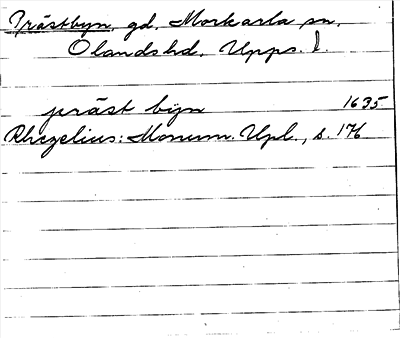 Prästbyn, gd, Morkarla sn,
Olandshd, Upps. l.
präst byn 1635
Rhezelius: Monum. Upl., s. 176